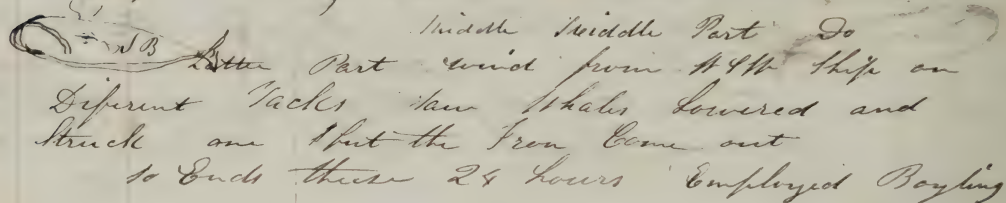 Middle Middle Part Do
SB Latter Part wind from Ship on
Diferent Tacks Saw Whales Lowered and
Struck one but the Iron Come out
So Ends these 24 hours Employed Boyling